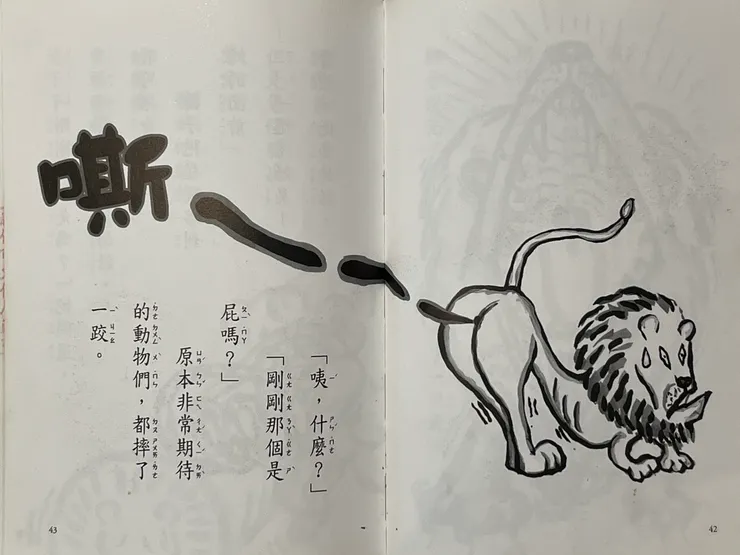 嘶———
「咦，什麼？」
「剛剛那個是
屁嗎？」
原本非常期待
的動物們，都摔了
一跤。
43
42